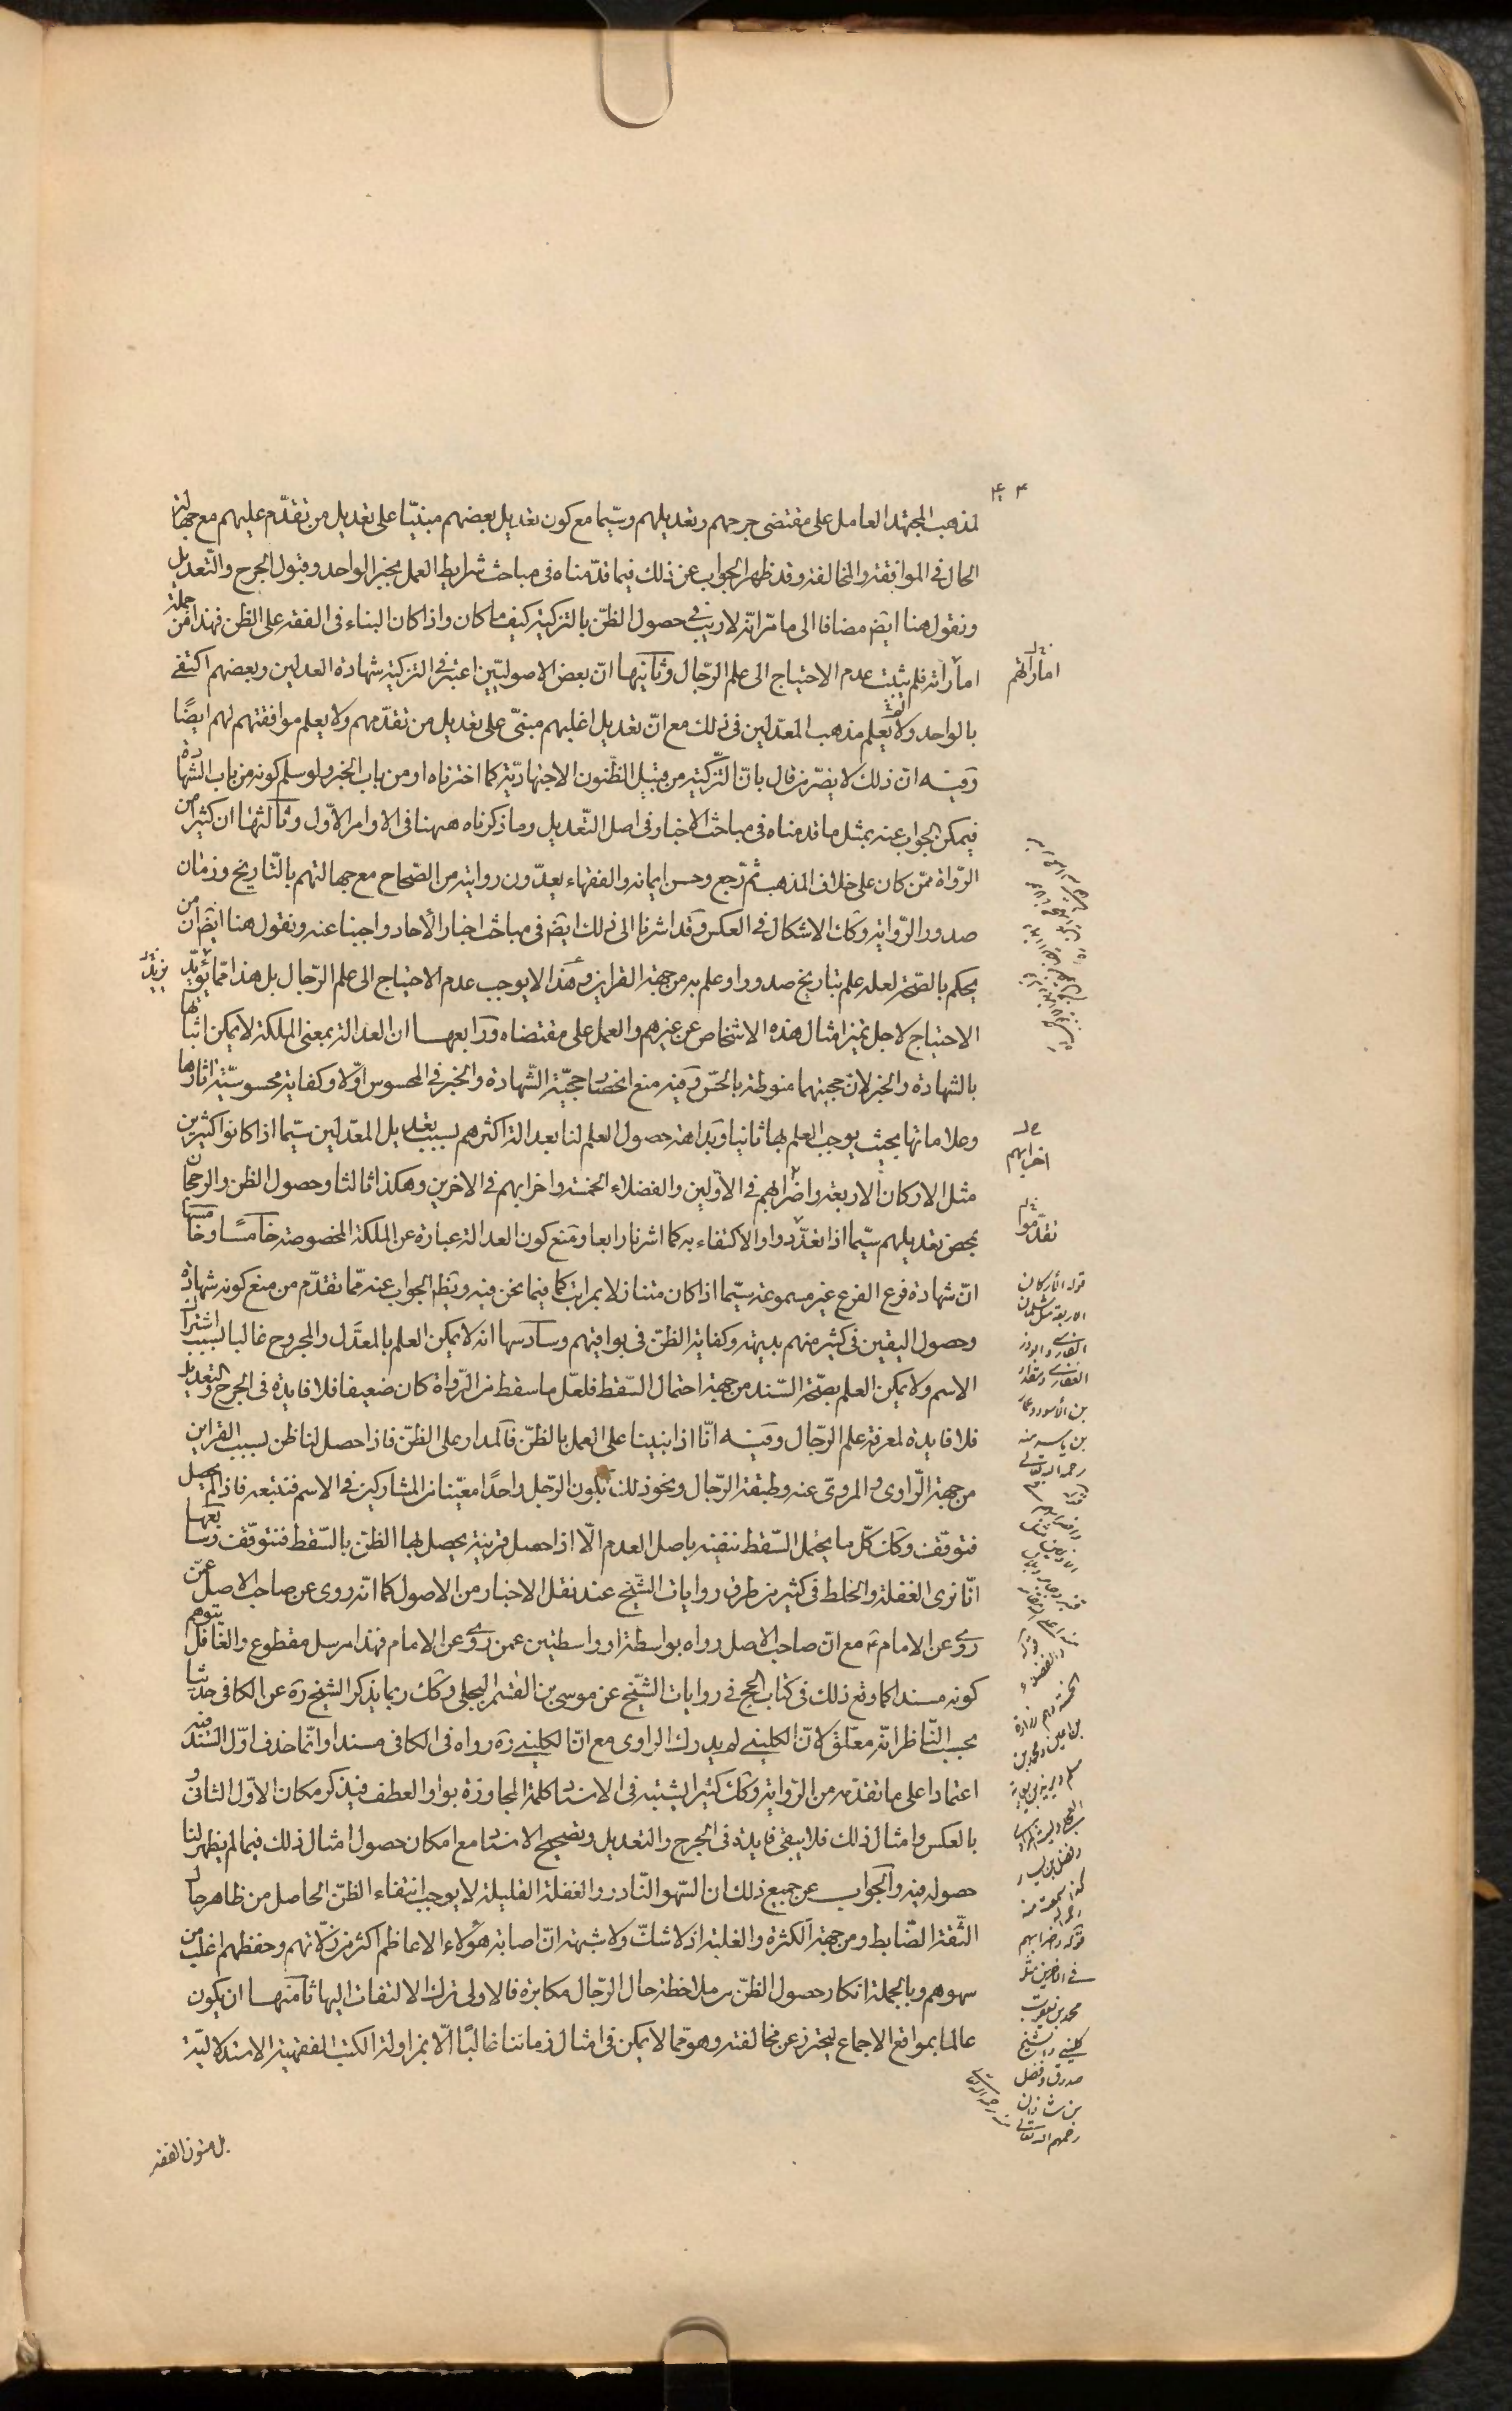 لمذهب المجتهد العامل على مقتضى جرحهم وتعديلهم وسيّما مع كون تعديل بعضهم مبنيّا على تعديل من تقدّم عليهم مع جهالة
الحال فى الموافقة والمخالفة وقد ظهر الجواب عن ذلك فيما قدّمناه فى مباحث شرايط العمل بخبر الواحد وقبول الجرح والتّعديل
ونقول هنا ايضم مضافا الى ما مرّ انّه لا ريب فى حصول الظنّ بالتزكية كيف ما كان واذا كان البناء فى الفقه على الظن فهذا من جملة
اماراته فلم يثبت عدم الاحتياج الى علم الرّجال وثانيها انّ بعض الاصوليّين اعتبر فى التزكية شهادة العدلين وبعضهم اكتفى
بالواحد ولا يعلم مذهب المعدّلين فى ذلك مع انّ تعديل اغلبهم مبنىّ على تعديل من تقدّمهم ولا يعلم موافقتهم لهم ايضًا
وفيه ان ذلك لا يضرّ من قال بانّ التّزكية من قبيل الظّنون الاجتهاديّة كما اخترناه او من باب الخبر ولو سلم كونه من باب الشهادة
فيمكن الجواب عنه بمثل ما قدمناه فى مباحث الاخبار فى اصل التّعديل وما ذكرناه ههنا فى الاوامر الاوّل وثالثها ان كثيرا من
الرّواة ممّن كان على خلاف المذهب ثم رجع وحسن ايمانه والفقهاء يعدّون روايته من الصّحاح مع جهالتهم بالتّاريخ وزمان
صدور الرّواية وكك الاشكال فى العكس وقد اشرنا الى ذلك ايضم فى مباحث اخبار الآحاد واجبنا عنه ونقول هنا ايضم ان من
يحكم بالصّحة لعله علم بتاريخ صدور او علم به من جهة القراين وهذا لا يوجب عدم الاحتياج الى علم الرّجال بل هذا ممّا يؤيّد
الاحتياج لاجل تميز امثال هذه الاشخاص عن غيرهم والعمل على مقتضاه ورابعها ان العدالة بمعنى الملكة لا يمكن اثباتها
بالشهادة والخبر لان حجيتهما منوطة بالحسّ وفيه منع انحصار حجيّة الشّهادة والخبر فى المحسوس اوّلا وكفاية محسوسيّة اثارها
وعلاماتها بحيث يوجب العلم بها ثانيا وبداهة حصول العلم لنا بعدالة اكثرهم بسبب تعديل المعدّلين سيّما اذا كانوا كثيرين
مثل الاركان الاربعة واضرابهم فى الاوّلين والفضلاء الخمسة واضرابهم فى الآخرين وهكذا ثالثا وحصول الظن والرجحان
بمحض تعديلهم سيّما اذا تعدّدوا والاكتفاء به كما اشرنا رابعا ومنع كون العدالة عبارة عن الملكة المخصوصة خامسًا وخامسها
انّ شهادة فرع الفرع غير مسموعة سيّما اذا كان متنازلا بمراتب كما فيما نحن فيه ويظهر الجواب عنه ممّا تقدّم من منع كونه شهادة
وحصول اليقين فى كثير منهم بديهة وكفاية الظنّ فى بواقيهم وسادسها انه لا يمكن العلم بالمعدّل والمجروح غالبا لسبب اشتراك
الاسم ولا يمكن العلم بصحّة السّند من جهة احتمال السّقط فلعلّ ما سقط من الرّواة كان ضعيفا فلا فايدة فى الجرح والتّعديل
فلا فايدة لمعرفة علم الرّجال وفيه انّا اذا بنينا على العمل بالظنّ فالمدار على الظنّ فاذا حصل لنا ظن بسبب القراين
من جهة الرّاوى والمروىّ عنه وطبقة الرّجال ونحو ذلك بكون الرّجل واحدًا معيّنا من المشاركين فى الاسم فنتبعه فاذا لم يحصل
فنتوقّف وكك كلّ ما يحتمل السّقط ننفيه باصل العدم الّا اذا حصل قرينة يحصل بها الظنّ بالسّقط فنتوقّف وسابعها
انّا نرى الغفلة والخلط فى كثير من طرق روايات الشّيخ عند نقل الاخبار من الاصول كما انّه روى عن صاحب الاصل عمّن
روى عن الامام ع مع انّ صاحب الاصل رواه بواسطة او واسطتين عمن روى عن الامام فهذا مرسل مقطوع والغافل يتوهم
كونه مسندا كما وقع ذلك فى كتاب الحج فى روايات الشّيخ عن موسى بن القسم البجلى وكك ربما يذكر الشيخ ره عن الكافى حديثا
يحسب النّاظر انّه معلّق لانّ الكلينى لم يدرك الراوى مع انّ الكلينى ره رواه فى الكافى مسندا وانّما حذف اوّل السّند فيه
اعتمادا على ما تقدّمه من الرّواية وكك كثيرا يشتبه فى الاسناد كلمة المجاوزة بواو العطف فيذكر مكان الاوّل الثانى و
بالعكس وامثال ذلك فلا يبقى فايدة فى الجرح والتعديل وتصحيح الاسناد مع امكان حصول امثال ذلك فيما لم يظهر لنا
حصوله فيه والجواب عن جميع ذلك ان السّهو النّادر والغفلة القليلة لا يوجب انتفاء الظنّ الحاصل من ظاهر حال
الثّقة الضّابط ومن جهة الكثرة والغلبة اذ لا شكّ ولا شبهة انّ اصابة هؤلاء الاعاظم اكثر من زلّاتهم وحفظهم اغلب من
سهوهم وبالجملة انكار حصول الظنّ من ملاحظة حال الرّجال مكابرة فالاولى ترك الالتفات اليها ثامنها ان يكون
عالما بمواقع الاجماع ليحترز عن مخالفته وهو ممّا لا يمكن فى امثال زماننا غالبًا الّا بمزاولة الكتب الفقهية الاستدلاليّة
بل متون الفقه
اماراتهم
اضرابهم
تقدّموا
قوله الأركان
الاربعة مثل سلمان
الفارسى وابوذر
الغفارى ومقداد
بن الأسود وعمار
بن ياسر منه
رحمه الله تعالى
الخمسة وهم زرارة
بن اعين ومحمد بن
مسلم
قوله واضرابهم
فى الآخرين مثل
محمد بن يعقوب
كلينى والشيخ
صدوق وفضل
بن شاذان
رحمهم الله تعالى